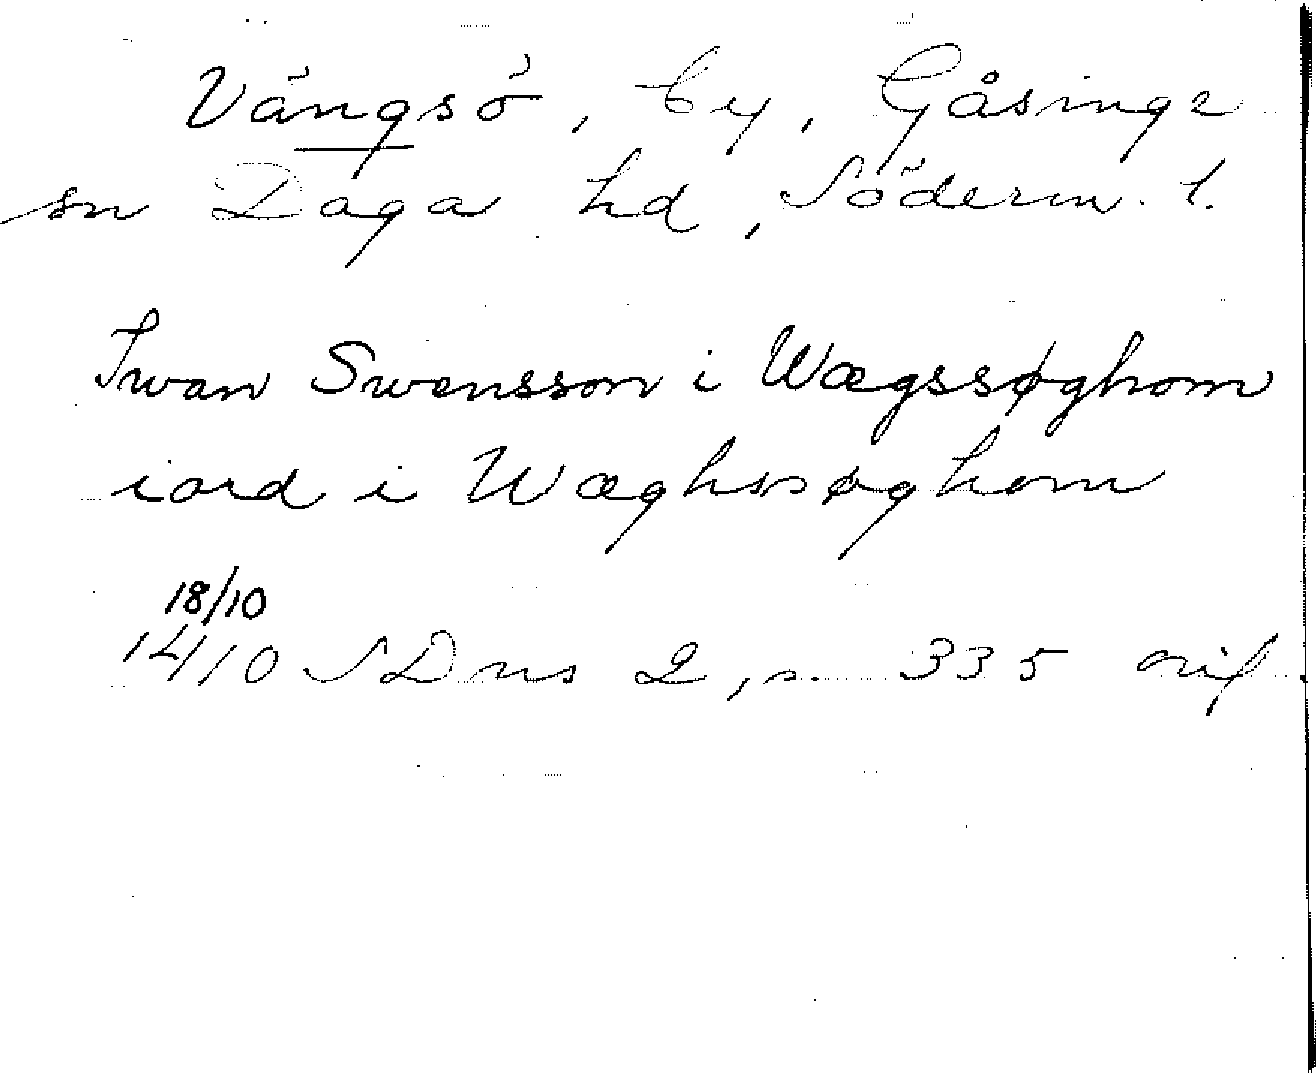 Vängsö, by, Gåsinge
sn Daga hd, Söderm. l.
Iwan Swensson i Wægssøghom
iord i Wæghssøghom
18/10
14/10 SDns 2, s. 335 orig.